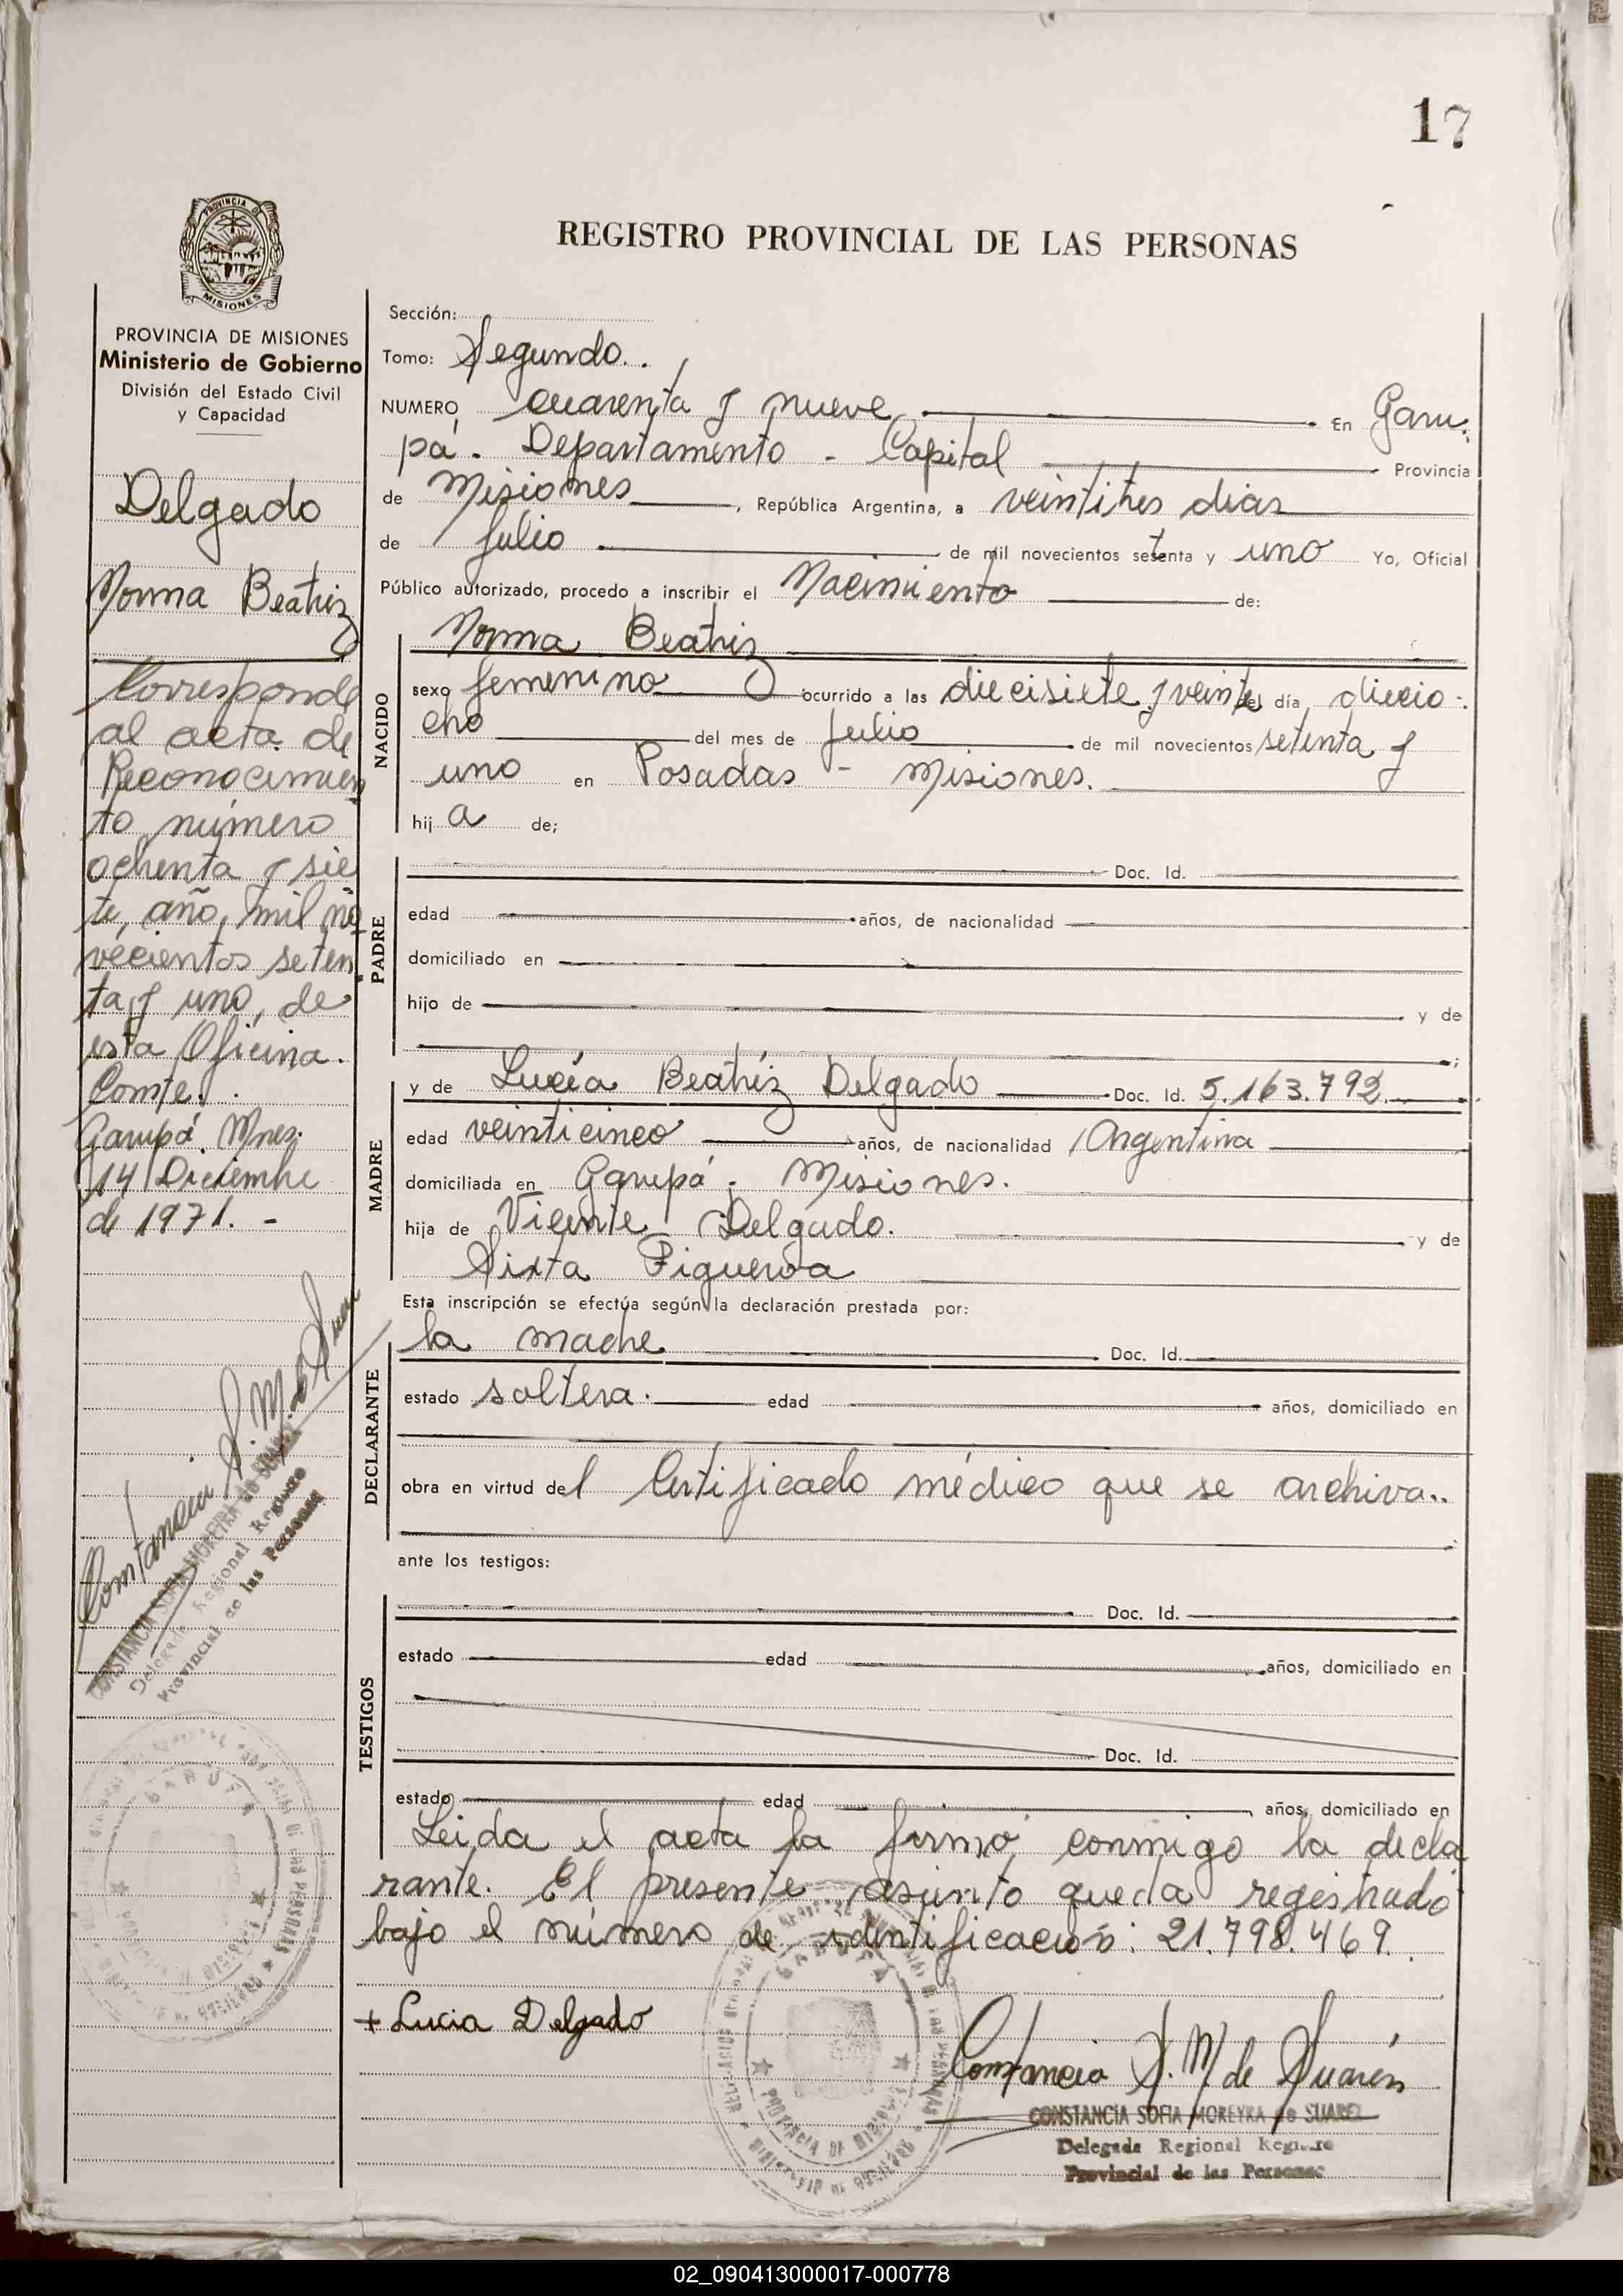 17
PROVINCIA DE
MISIONES
REGISTRO PROVINCIAL DE LAS PERSONAS
PROVINCIA DE MISIONES
Ministerio de Gobierno
División del Estado Civil
y Capacidad
Delgado
Norma Beatriz
Corresponde
al acta de
Reconocimien
to número
ochenta y sie
te, año, mil no
vecientos seten
ta y uno, de
esta Oficina.
Conste.
Garupá Mnes.
14 Diciembre
de 1971. -
Constancia S. M. de Suar
CONSTANCIA SOFIA MOREYRA de SUAREZ
Delegada Regional Registro
Provincial de las Personas
Sección:
Tomo: Segundo.
NUMERO cuarenta y nueve En Garu
pá. Departamento - Capital Provincia
de Misiones, República Argentina, a veintitres dias
de Julio de mil novecientos setenta y uno Yo, Oficial
Público autorizado, procedo a inscribir el Nacimiento de:
NACIDO
Norma Beatriz
sexo femenino ocurrido a las diecisiete y veinte del día diecio-
cho del mes de Julio de mil novecientos setenta y
uno en Posadas - Misiones.
hij a de;
PADRE
Doc. Id.
edad años, de nacionalidad
domiciliado en
hijo de y de
MADRE
y de Lucía Beatriz Delgado Doc. Id. 5.163.792.
edad veinticinco años, de nacionalidad Argentina
domiciliada en Garupá - Misiones.
hija de Vicente Delgado. y de
Sixta Figueroa
Esta inscripción se efectúa según la declaración prestada por:
DECLARANTE
la madre Doc. Id.
estado soltera. edad años, domiciliado en
obra en virtud del Certificado médico que se archiva..
ante los testigos:
TESTIGOS
Doc. Id.
estado edad años, domiciliado en
Doc. Id.
estado edad años, domiciliado en
Leida el acta la firmó conmigo la decla
rante. El presente asiento queda registrado
bajo el número de identificación: 21.798.469.
+ Lucia Delgado
GARUPA
PROVINCIA DE MISIONES
Constancia S. M. de Suarez
CONSTANCIA SOFIA MOREYRA de SUAREZ
Delegada Regional Registro
Provincial de las Personas
02_090413000017-000778